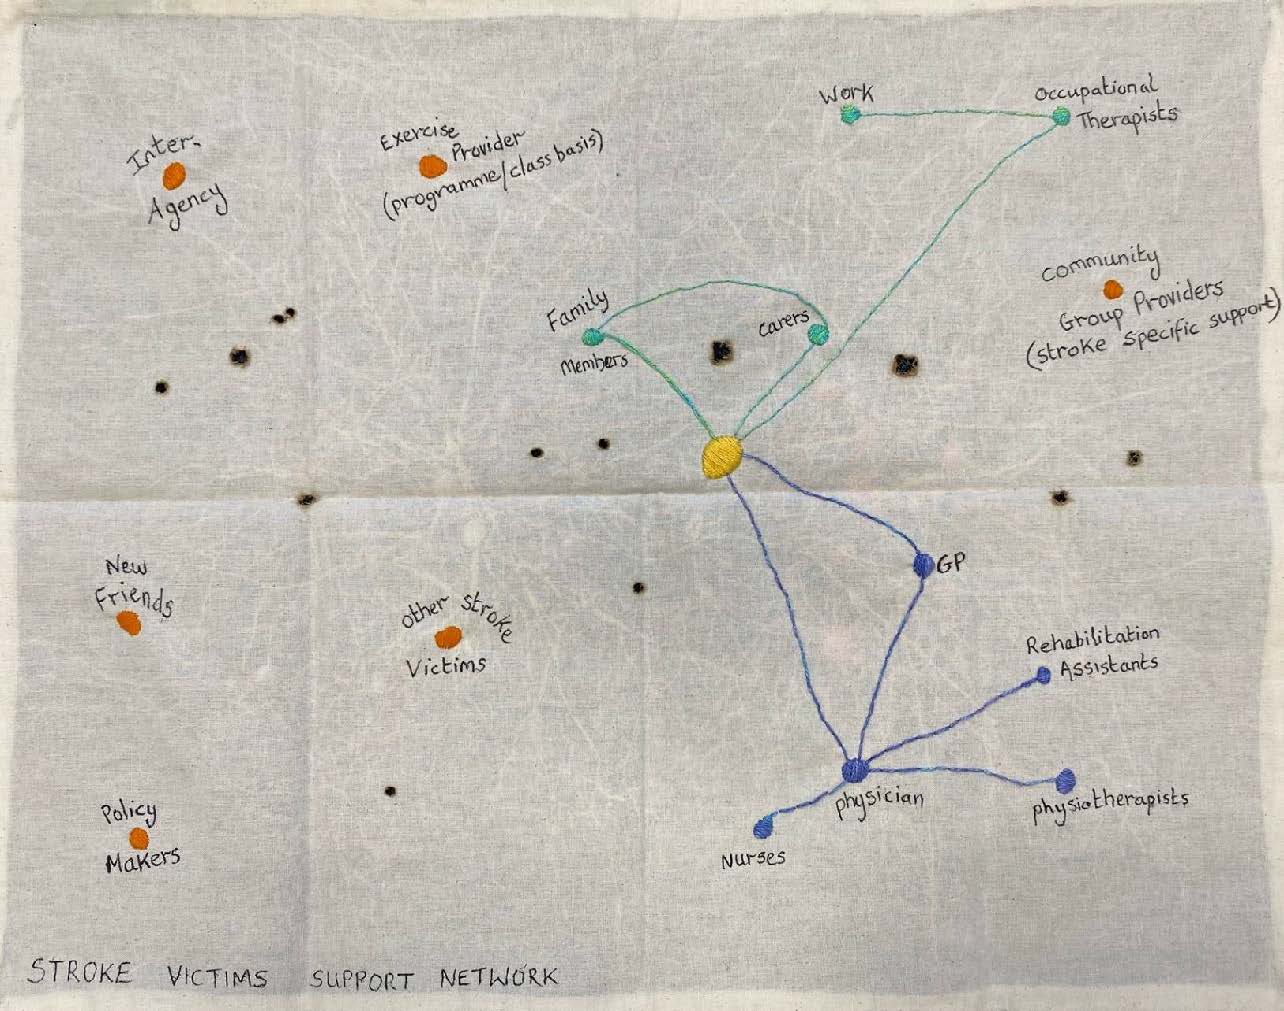 Work
Occupational
Therapists
Inter-
Agency
Exercise
Provider
(programme/class basis)
Community
Group Providers
(stroke specific support)
Family
Members
Carers
GP
New
Friends
Other Stroke
Victims
Rehabilitation
Assistants
physician
physiotherapists
Nurses
Policy
Makers
STROKE VICTIMS SUPPORT NETWORK